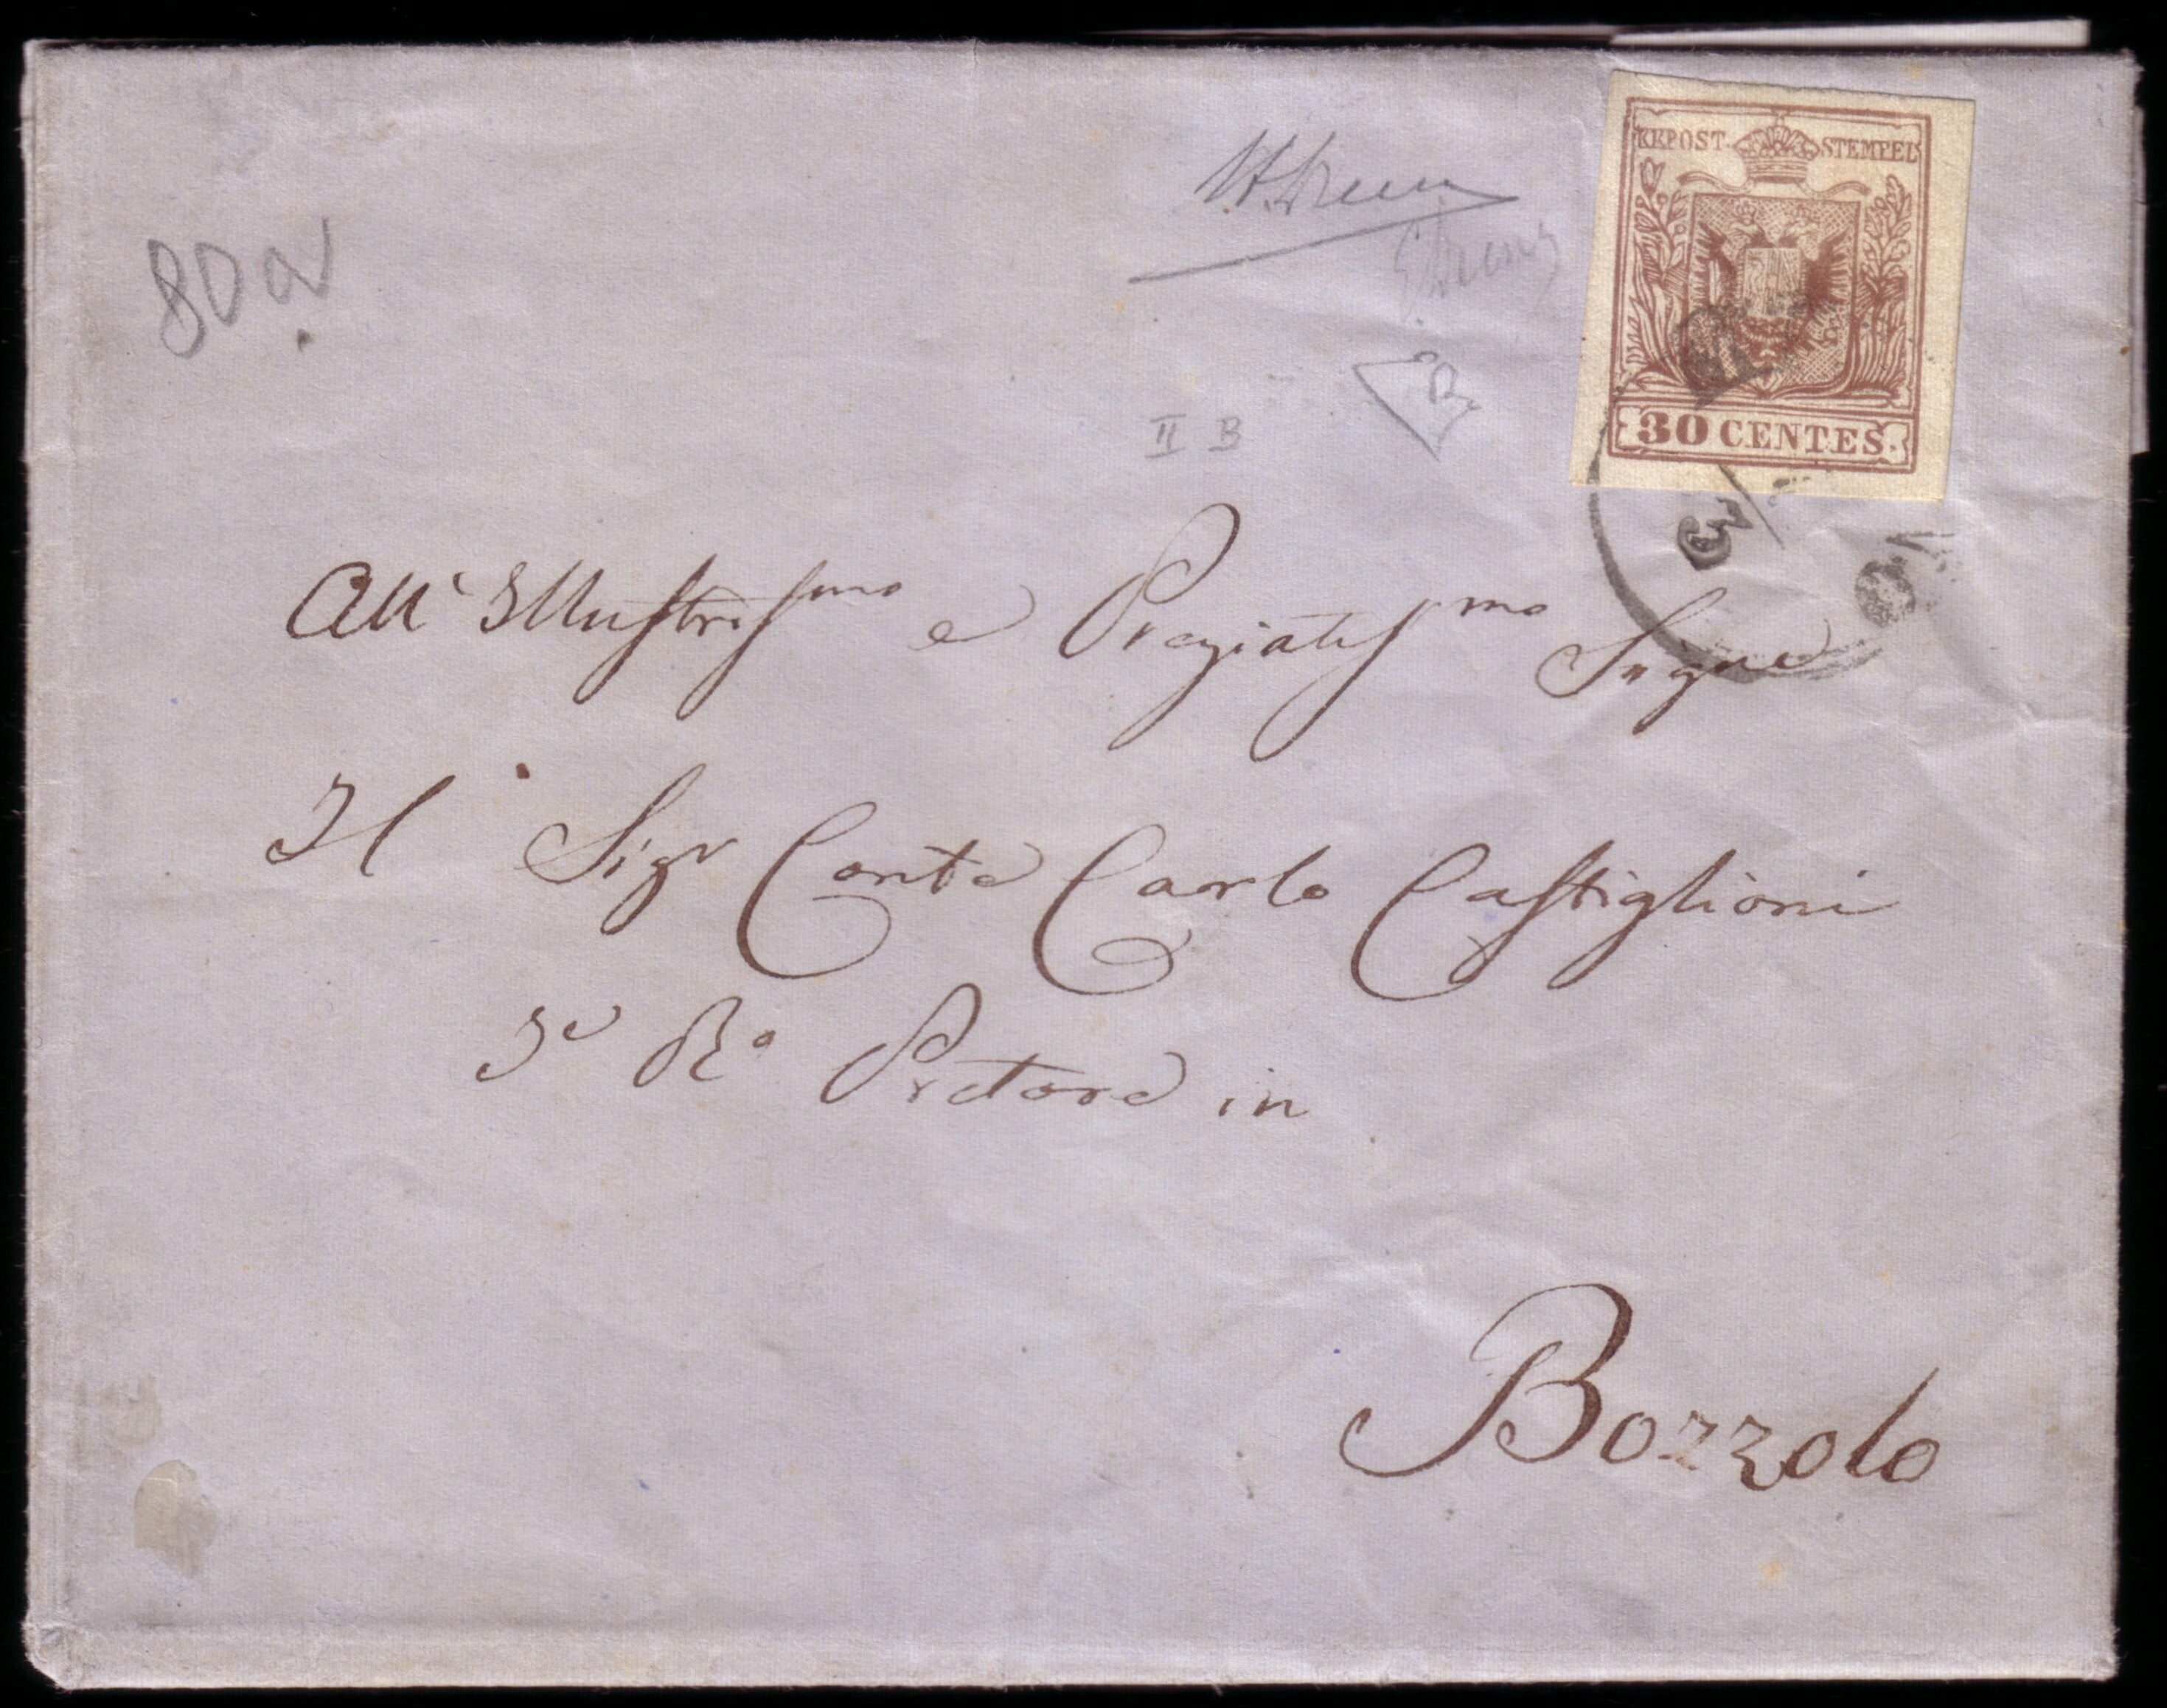 KKPOST-STEMPEL
30 CENTES.
80
II B
All' Illustrissmo e Pregiatissmo Signre
Il Sigr Conte Carlo Castiglioni
Re Pretore in
Bozzolo